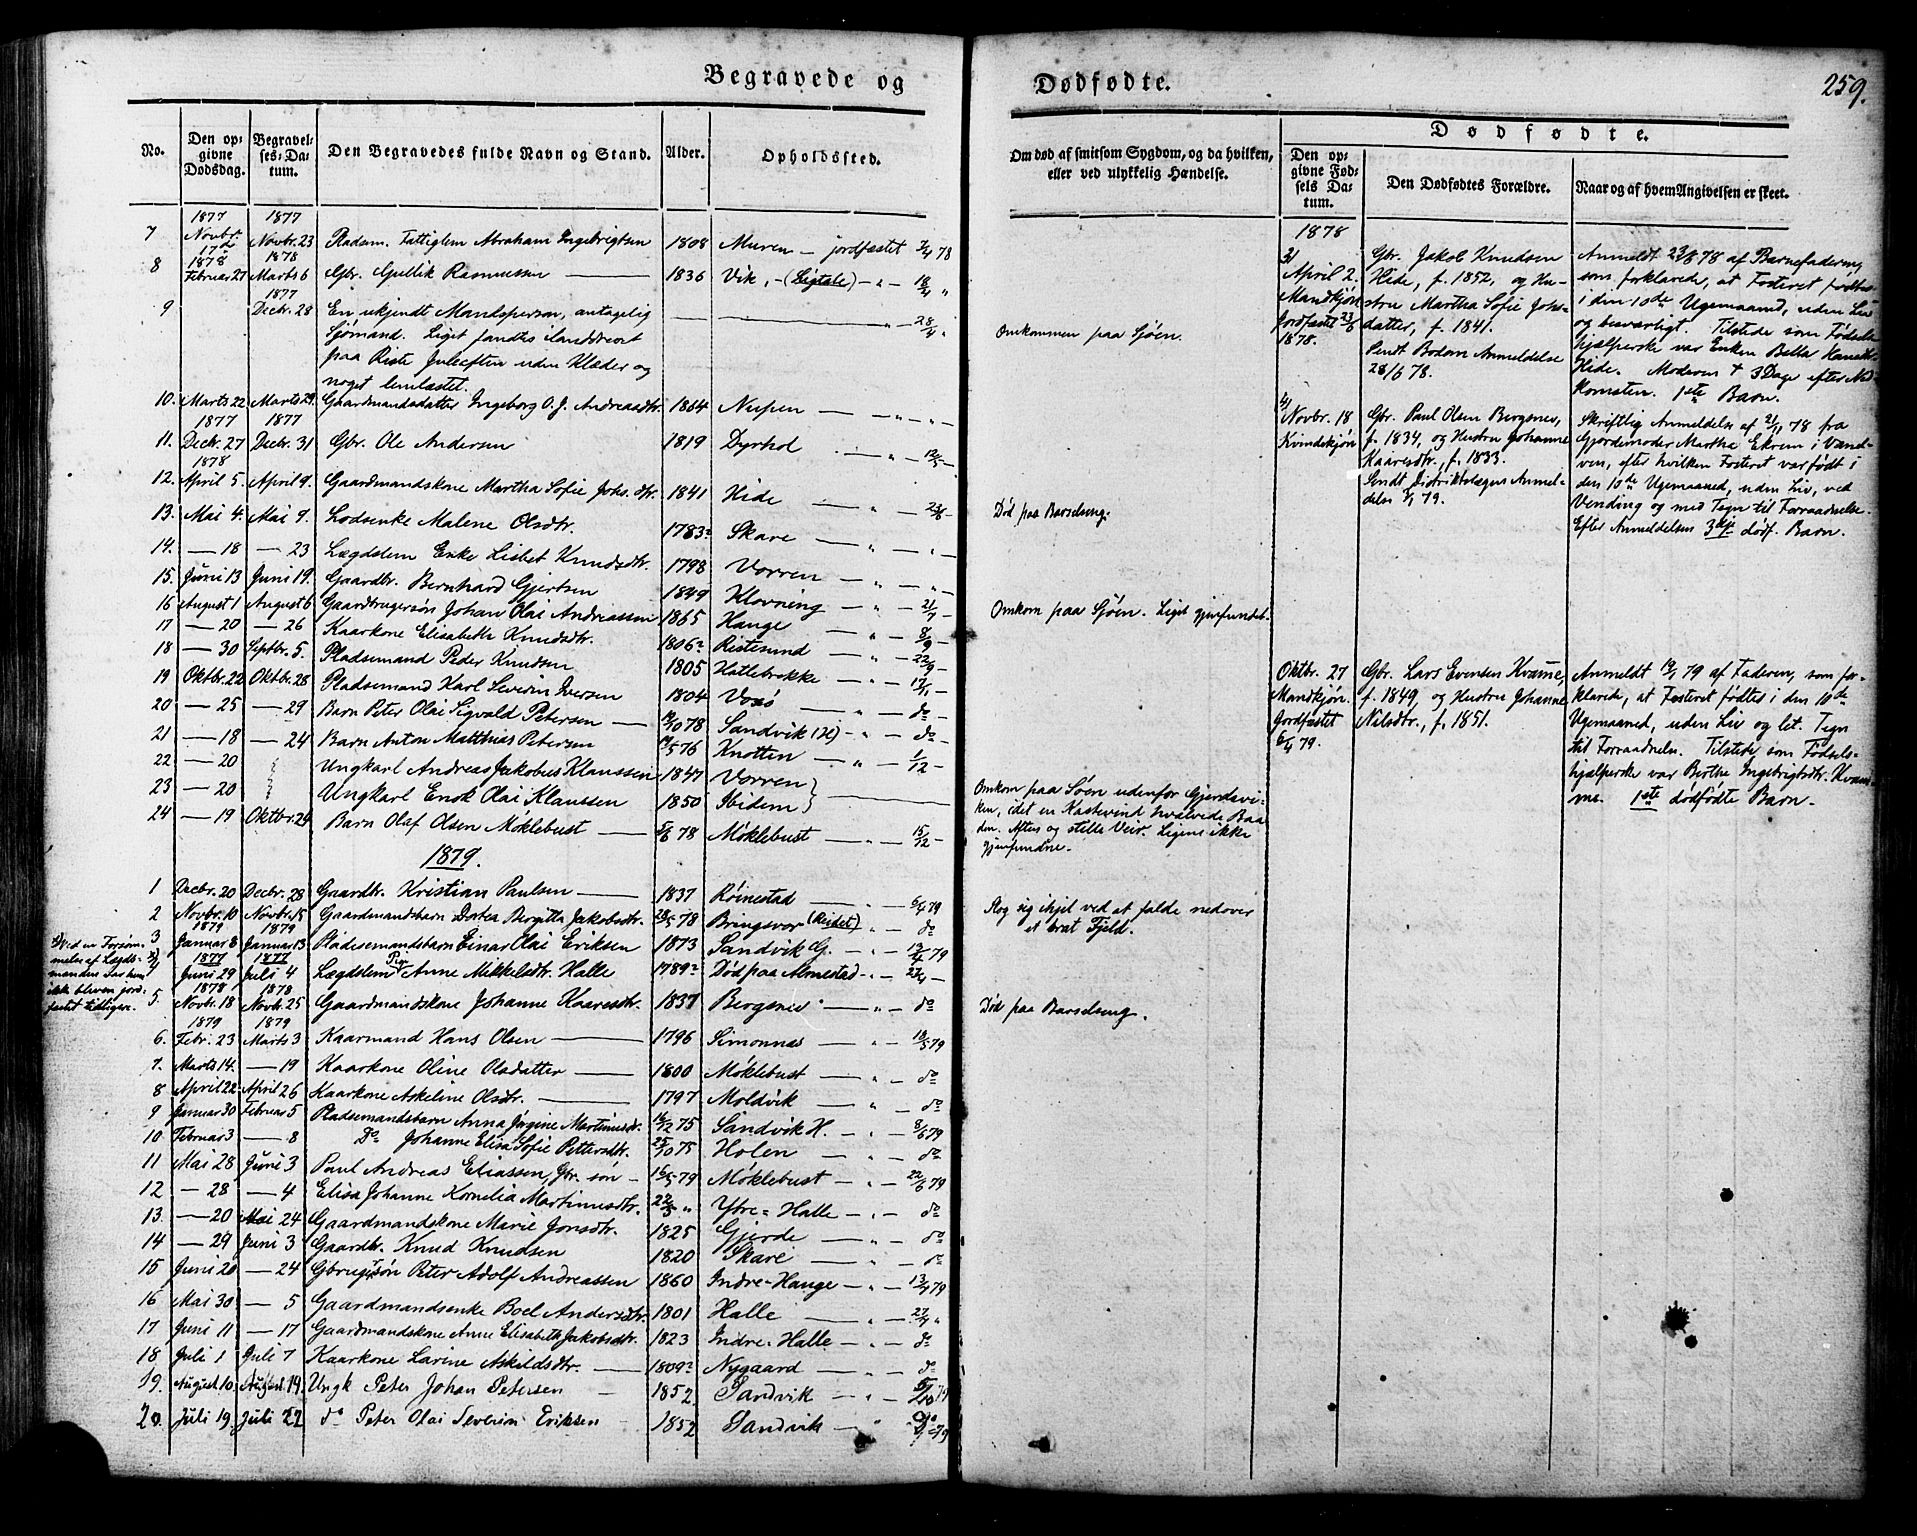 Begravede og
Dødfødte.
259.
No.
Den opgivne Dødsdag.
Begravelses-Datum.
Den Begravedes fulde Navn og Stand.
Alder.
Opholdssted.
Om død af smitsom Sygdom, og da hvilken, eller ved ulykkelig Hændelse.
Dødfødte.
Den opgivne Fødsels Datum.
Den Dødfødtes Forældre.
Naar og af hvem Angivelsen er skeet.
1877 1877
7 Novbr. 17de Novbr. 23 Pladsm. Fattiglem Abraham Ingebrigtsen 1808 Muren — jordfæstet 78
1878 1878
8 Februar 27 Marts 6 Gbr. Gullik Rasmussen 1836 Vik
1877
9 Decbr. 28 En ukjendt Mandsperson, antagelig 28/4
Sjømand. Liget fandtes ilanddrevet
paa Riste Juleaften uden Klæder og
noget lemlæstet.
Omkommen paa Sjøen.
10. Marts 22 Marts 29 Gaardmandsdatter Ingeborg O. J. Andreasdtr. 1864 Nupen — " —
1877 1877
11. Decbr. 27 Decbr. 31 Gbr. Ole Andersen 1819 Dyrhol — " —
1878
12. April 5. April 9. Gaardmandskone Martha Sofie Johs.dtr. 1841 Hide — " —
Død paa Barselseng.
13. Mai 4. Mai 9. Lodsenke Malene Olsdtr. 1783 Skare — " —
14. — 18 — 23 Lægdslem Enke Lisbet Knudsdtr. 1798 Vorren — " —
15. Juni 13 Juni 19. Gaardbr. Bernhard Gjertsen 1849 Kloning — " — 21/7
Omkom paa Sjøen. Liget gjenfundet.
16 August 1 August 6 Gaardbrugersøn Johan Olai Andreassen 1865 Hauge — " — 8/9
17 — 20 — 26 Kaarkone Elisabeth Knudsdtr. 1806 Ristesund — " — 22/9
18 — 30 Septbr. 5. Pladsemand Peder Knudsen 1805 Hatlebrekke — "
19 Oktbr. 22 Oktbr. 28 Pladsemand Karl Severin Iversen 1804 Voxø — do
20 — 25 — 29 Barn Peter Olai Sigvald Petersen 78 Sandvik (H) — " — do
21 — 18 — 24 Barn Anton Matthias Petersen 76 Knotten — " — 1/12
22 — 20 Ungkarl Andreas Jakobus Klaussen 1847 Vorren
23 — 20 Ungkarl Enok Olai Klaussen 1850 Ibidem
Omkom paa Søen udenfor Gjerdevi-
ken, idet en Kastevind hvalvede Baa-
den. Aften og stille Veir. Ligene ikke
gjenfundne.
24 — 19 Oktbr. 24 Barn Olaf Olsen Møklebust 78 Møklebust — " — 15/12
1879.
1 Decbr. 20 Decbr. 28 Gaardbr. Kristian Paulsen 1837 Røinestad — " — 79
2 Novbr. 10 Novbr. 15 Gaardmandsbarn Dortea Bergitta Jakobsdtr. 78 Bringsvor (Reidet) — do
Slog sig ihjel ved at falde nedover
et brat Fjeld.
1879 1879
3 Januar 8 Januar 13 Pladsemandsbarn Einar Olai Eriksen 1873 Sandvik G. — " — 79
1877 1877
4 Juni 29 Juli 4 Lægdslem Pige Anne Mikkelsdtr. Halle 1789 Død paa Almestad — " —
1878 1878
5. Novbr. 18 Novbr. 25 Gaardmandskone Johanne Kaaresdtr. 1837 Bergsnev — " — do
Død paa Barselseng.
1879 1879
6. Febr. 23 Marts 3 Kaarmand Hans Olsen 1796 Simonnæs — " — 79
7. Marts 14. — 19 Kaarkone Oline Olsdatter 1800 Møklebust — " — do
8 April 22 April 26 Kaarkone Askeline Olsdtr. 1797 Moldvik — " — do
9 Januar 30 Februar 5 Pladsemandsbarn Anna Jørgine Martinusdtr. 16/12 75 Sandvik H. — " — 8/6 79
10 Februar 3 — 8 Do Johanne Elisa Sofie Pettersdtr. 25/10 75 Holen — " — do
11 Mai 28 Juni 3 Paul Andreas Eliassen, Gbr. søn 79 Møklebust — " — 22/6 79
12 — 28 — 4 Elisa Johanne Kornelia Martinusdtr. " Ytre-Halle — " — do
13. — 20 Mai 24 Gaardmandskone Marie Jonsdtr. 1825 Gjerde — " — do
14 — 29 Juni 3 Gaardbr. Knud Knudsen 1820 Skare — " — do
15 Juni 20 — 24 Gbrugersøn Peter Adolf Andreassen 1860 Indre-Hauge — " — 79
16 Mai 30 — 5 Gaardmandsenke Boel Andersdtr. 1801 Halle — " — "
17 Juni 11 — 17 Gaardmandskone Anne Elisabeth Jakobsdtr. 1823 Indre-Halle — " — do
18 Juli 1 Juli 7 Kaarkone Larine Askildsdtr. 1809 Nygaard — do
19. August 10 August 14 Ungk Peter Johan Petersen 1852 Sandvik — " — 79
20. Juli 19 Juli 22 do Peter Olai Severin Eriksen 1852 Sandvik — " 79
Ved en Forsøm-
melse af Lægds-
manden
ikke bleven jord-
fæstet tidligere.
1878
April 2.
Mandkjøn
Jordfæstet
1878.
Gbr. Jakob Knudsen
Hide, f. 1852, og Hu-
stru Martha Sofie Johs-
datter, f. 1841.
Sendt Anmeldelse
28/6 78.
Anmeldt 78 af Barnefaderen,
som forklarede, at Fosteret fødtes
i den 10de Ugemaaned, uden Liv
og besværligt. Tilstede som Fødsels-
hjælperske var Enken
Hide. Moderen † 3 Dage efter Ned-
komsten. 1ste Barn.
Novbr. 18
Kvindekjøn
Gbr. Paul Olsen Bergsnev,
f. 1834, og Hustru Johanne
Kaaresdtr., f. 1833.
Sendt Distriktslægen Anmel-
delse 79.
Skriftlig Anmeldelse af 78 fra
Gjordemoder Martha Ekrem i Vanel-
ven, efter hvilken Fosteret var født i
den 10de Ugemaaned, uden Liv, ved
Vending og med Tegn til Forraadnelse.
Efter Anmeldelsen 3die dødf. Barn.
Oktbr. 27
Mandkjøn.
Jordfæstet
79.
Gbr. Lars Evensen Kvame,
f. 1849 og Hustru Johanne
Nilsdtr., f. 1851.
Anmeldt 79 af Faderen, som for-
klarede, at Fosteret fødtes i den 10de
Ugemaaned, uden Liv og let. Tegn
til Forraadnelse. Tilstede som Fødsels-
hjælperske var Berthe Ingebrigtsdtr. Kvam-
me. 1ste dødfødte Barn.